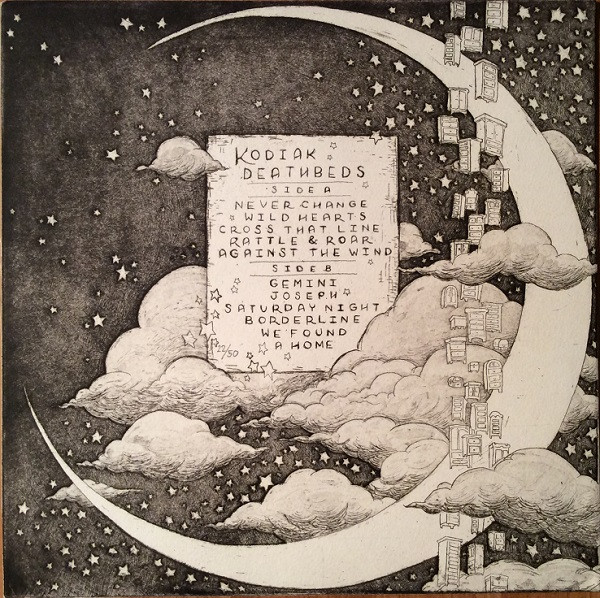 KODIAK
DEATHBEDS
SIDE A
NEVER CHANGE
WILD HEARTS
CROSS THAT LINE
RATTLE & ROAR
AGAINST THE WIND
SIDE B
GEMINI
JOSEPH
SATURDAY NIGHT
BORDERLINE
WE FOUND
A HOME
22/50